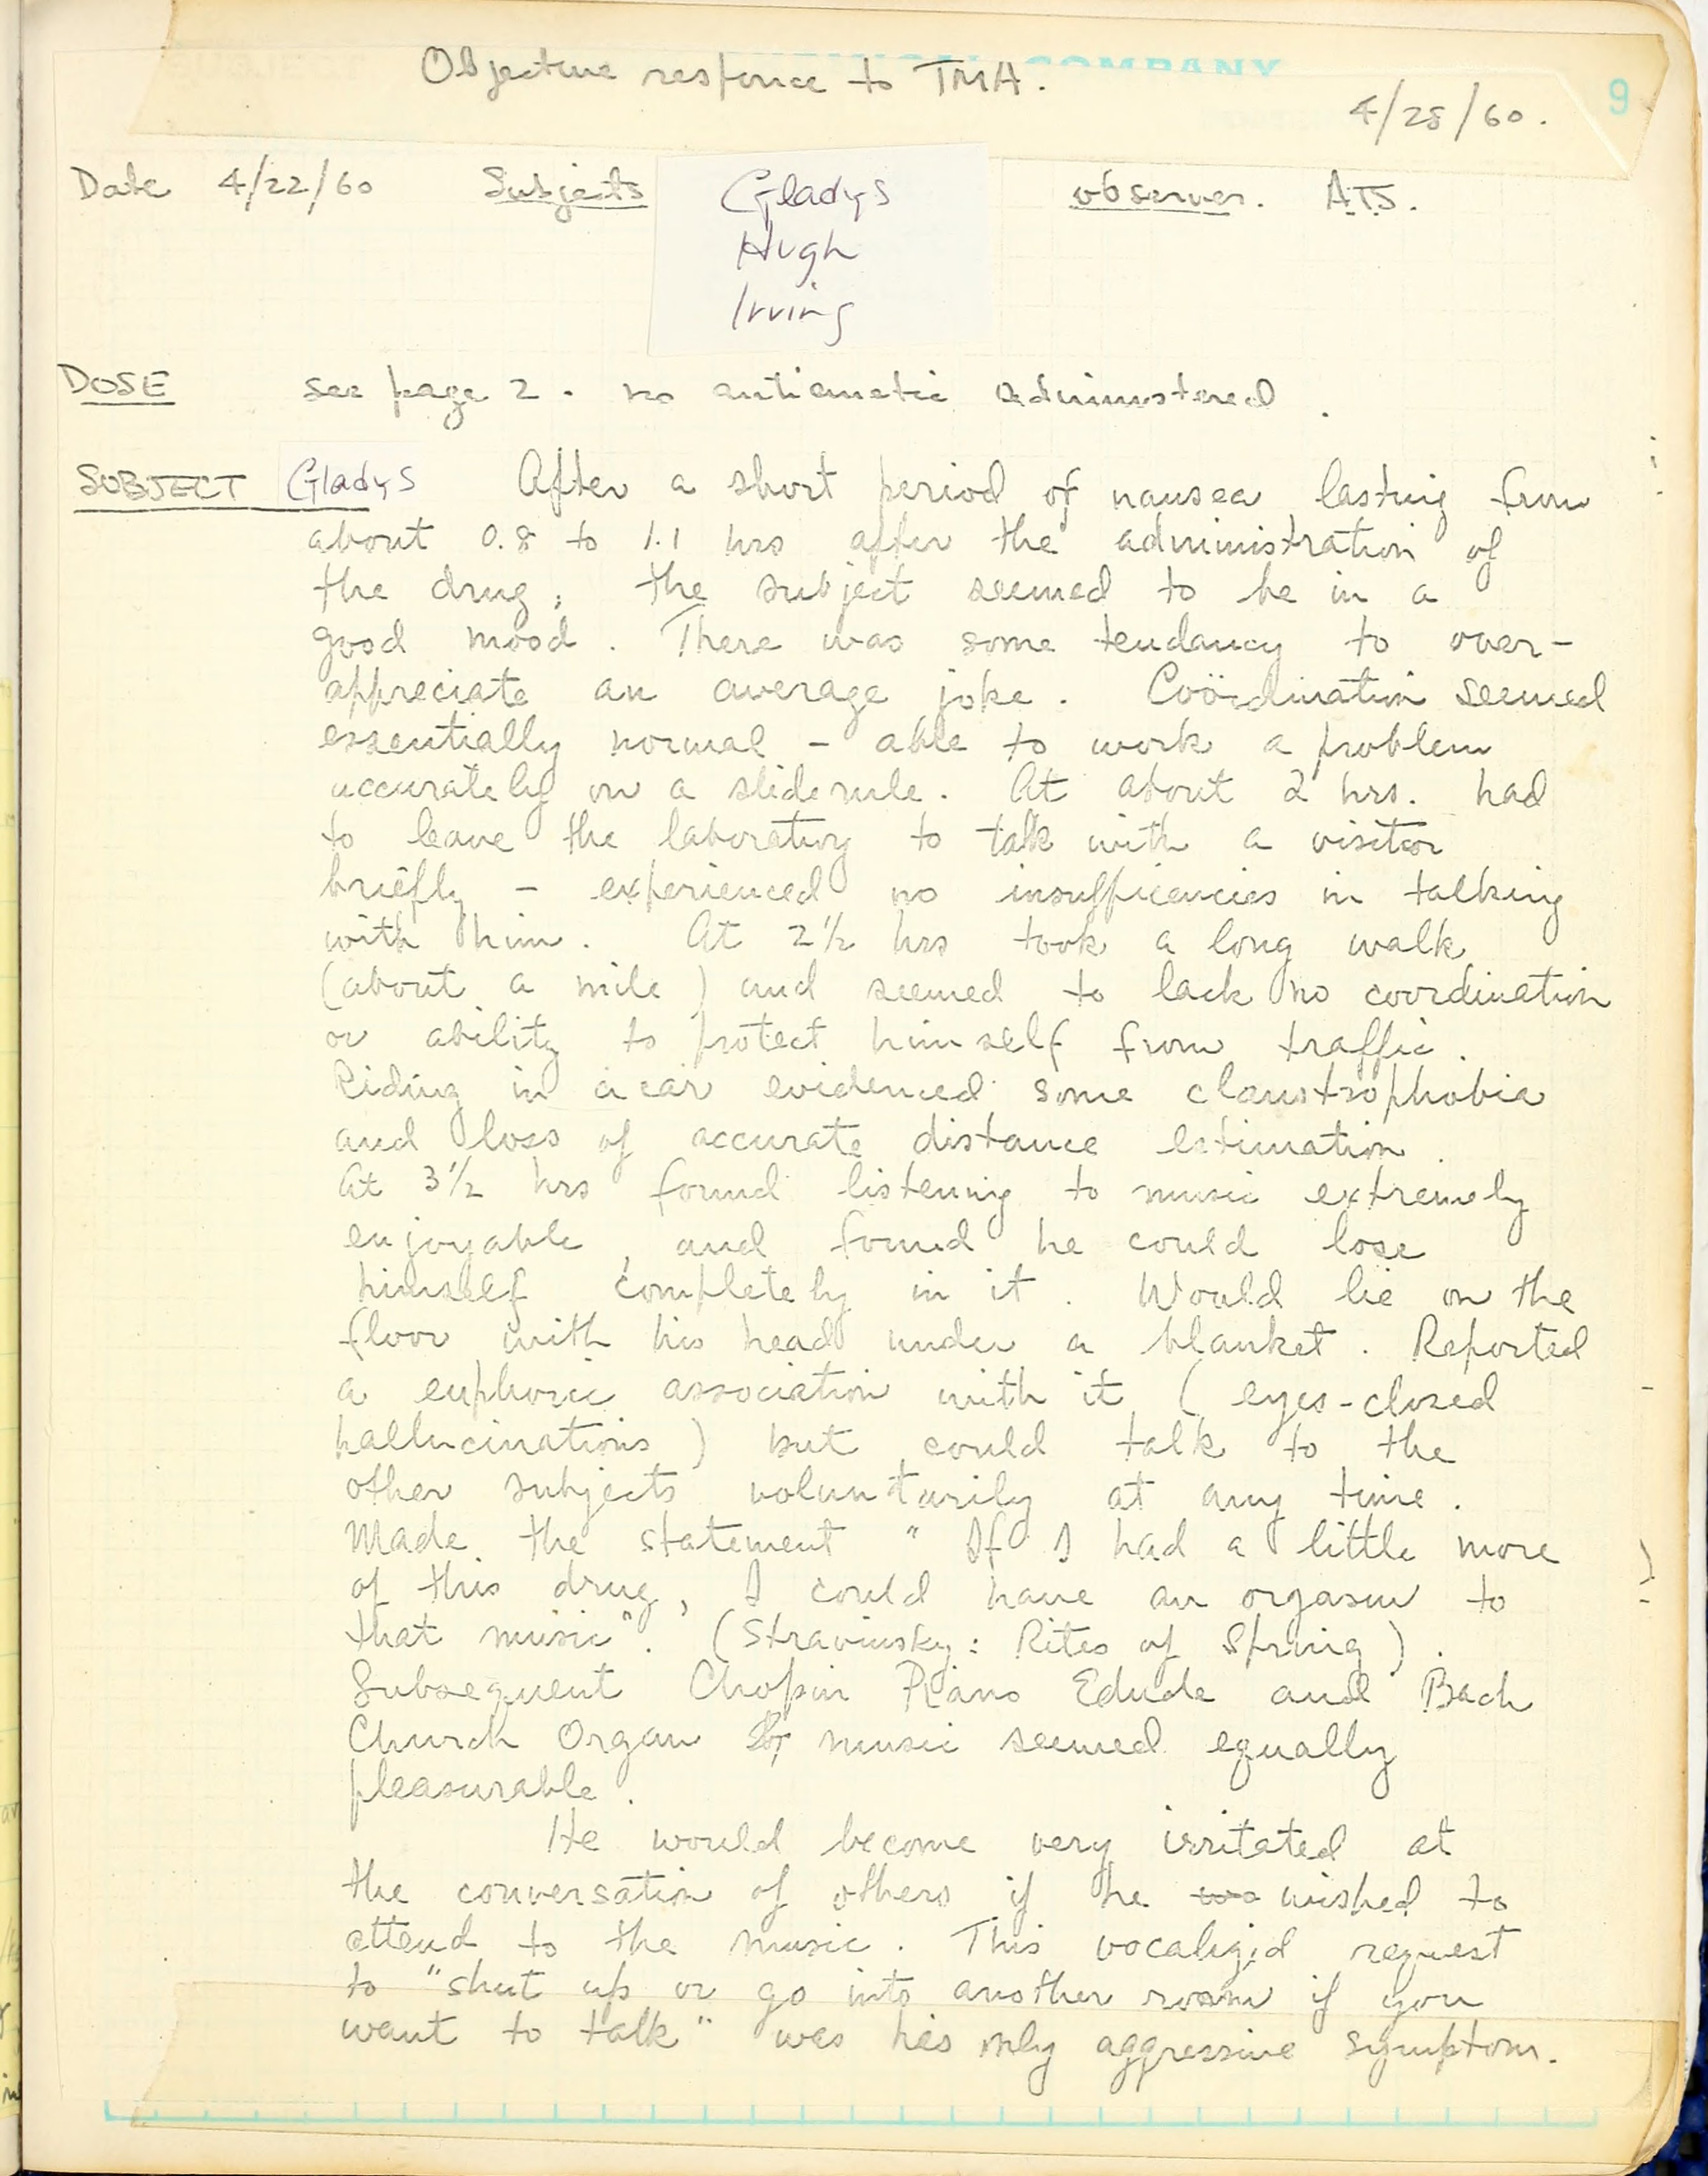 Objective responce to TMA.
COMPANY
9
4/28/60.
Date 4/22/60 Subjects Gladys observer. A.T.S.
Hugh
Irving
DOSE see page 2. no antiemetic administered.
SUBJECT Gladys After a short period of nausea lasting from
about 0.8 to 1.1 hrs after the administration of
the drug, the subject seemed to be in a
good mood. There was some tendancy to over-
appreciate an average joke. Coördination seemed
essentially normal - able to work a problem
accurately on a slide rule. At about 2 hrs. had
to leave the laboratory to talk with a visitor
briefly - experienced no insufficencies in talking
with him. At 2½ hrs took a long walk
(about a mile) and seemed to lack no coordination
or ability to protect himself from traffic.
Riding in a car evidenced some claustrophobia
and loss of accurate distance estimation.
At 3½ hrs found listening to music extremely
enjoyable, and found he could lose
himself completely in it. Would lie on the
floor with his head under a blanket. Reported
a euphoric association with it (eyes-closed
hallucinations) but could talk to the
other subjects voluntarily at any time.
Made the statement "If I had a little more
of this drug, I could have an orgasm to
that music". (Stravinsky: Rites of Spring).
Subsequent Chopin Piano Edude and Bach
Church Organ music seemed equally
pleasurable.
He would become very irritated at
the conversation of others if he was wished to
attend to the music. This vocalized request
to "shut up or go into another room if you
want to talk" was his only aggressive symptom.